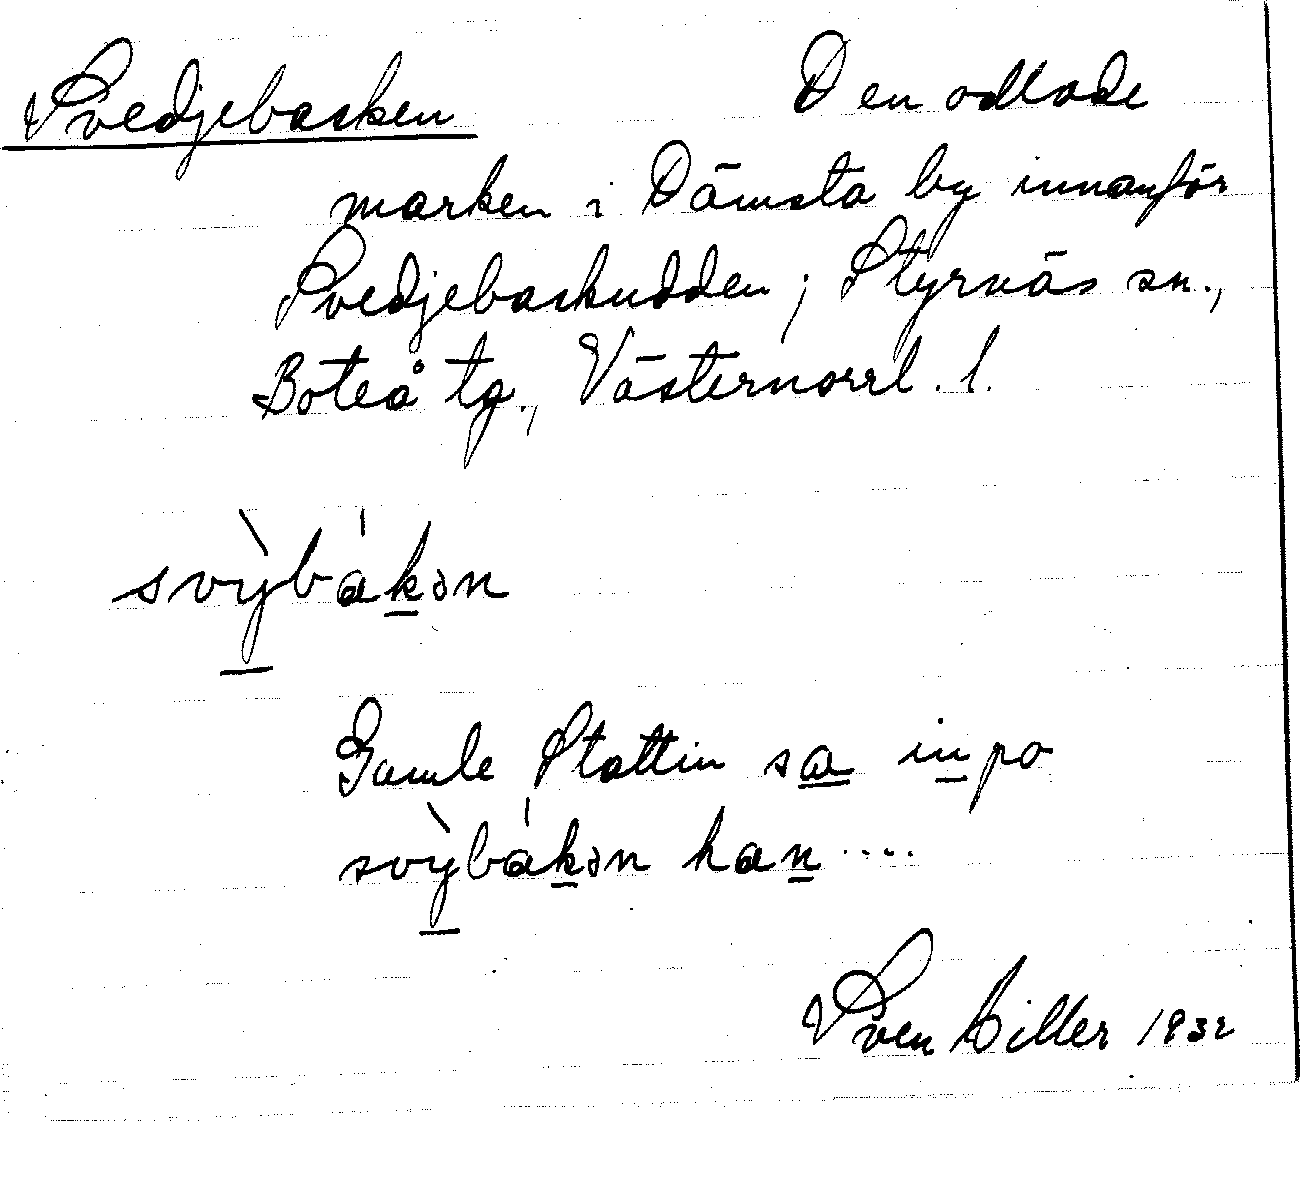 Svedjebacken Den odlade
marken i Dämsta by innanför
Svedjebackudden; Styrnäs sn.,
Boteå tg., Västernorrl. l.
svỳbákən
Gamle Stattin sa inpo
svỳbákən han ....
Sven Hiller 1932